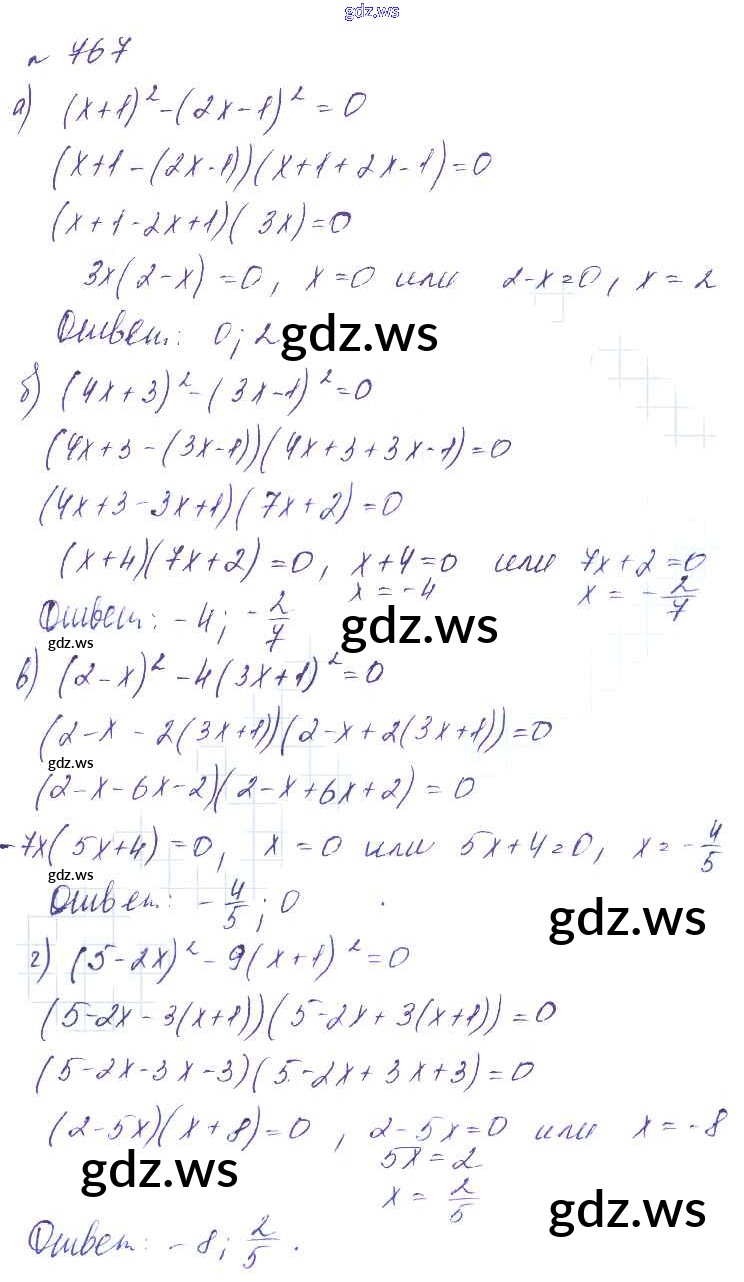 gdz.ws
№ 767
а) (x+1)² - (2x-1)² = 0
(x+1-(2x-1))(x+1+2x-1)=0
(x+1-2x+1)(3x)=0
3x(2-x)=0, x=0 или 2-x=0, x=2
Ответ: 0; 2 gdz.ws
б) (4x+3)² - (3x-1)² = 0
(4x+3-(3x-1))(4x+3+3x-1)=0
(4x+3-3x+1)(7x+2)=0
(x+4)(7x+2)=0, x+4=0 или 7x+2=0
x = -4 x = -2/7
Ответ: -4; -2/7 gdz.ws
gdz.ws
в) (2-x)² - 4(3x+1)² = 0
(2-x-2(3x+1))(2-x+2(3x+1))=0
gdz.ws
(2-x-6x-2)(2-x+6x+2)=0
-7x(5x+4)=0, x=0 или 5x+4=0, x=-4/5
gdz.ws
Ответ: -4/5; 0. gdz.ws
г) (5-2x)² - 9(x+1)² = 0
(5-2x-3(x+1))(5-2x+3(x+1))=0
(5-2x-3x-3)(5-2x+3x+3)=0
(2-5x)(x+8)=0, 2-5x=0 или x=-8
gdz.ws 5x=2
x = 2/5 gdz.ws
Ответ: -8; 2/5.